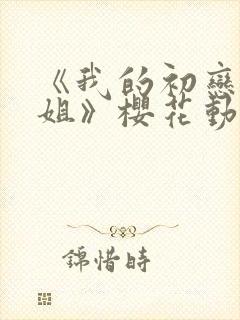 《我的初戀
姐》櫻花動
錦惜時